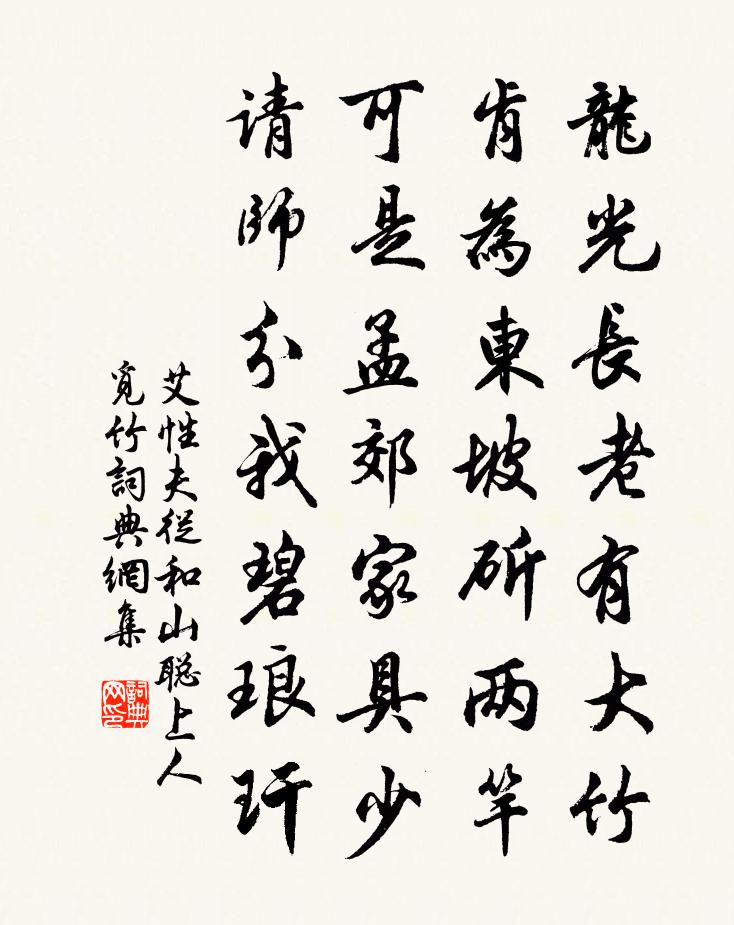 龍光長老有大竹
肯為東坡斫两竿
可是孟郊家具少
请師分我碧琅玕
艾性夫從和山聡上人
覓竹詞典網集
詞典
网印